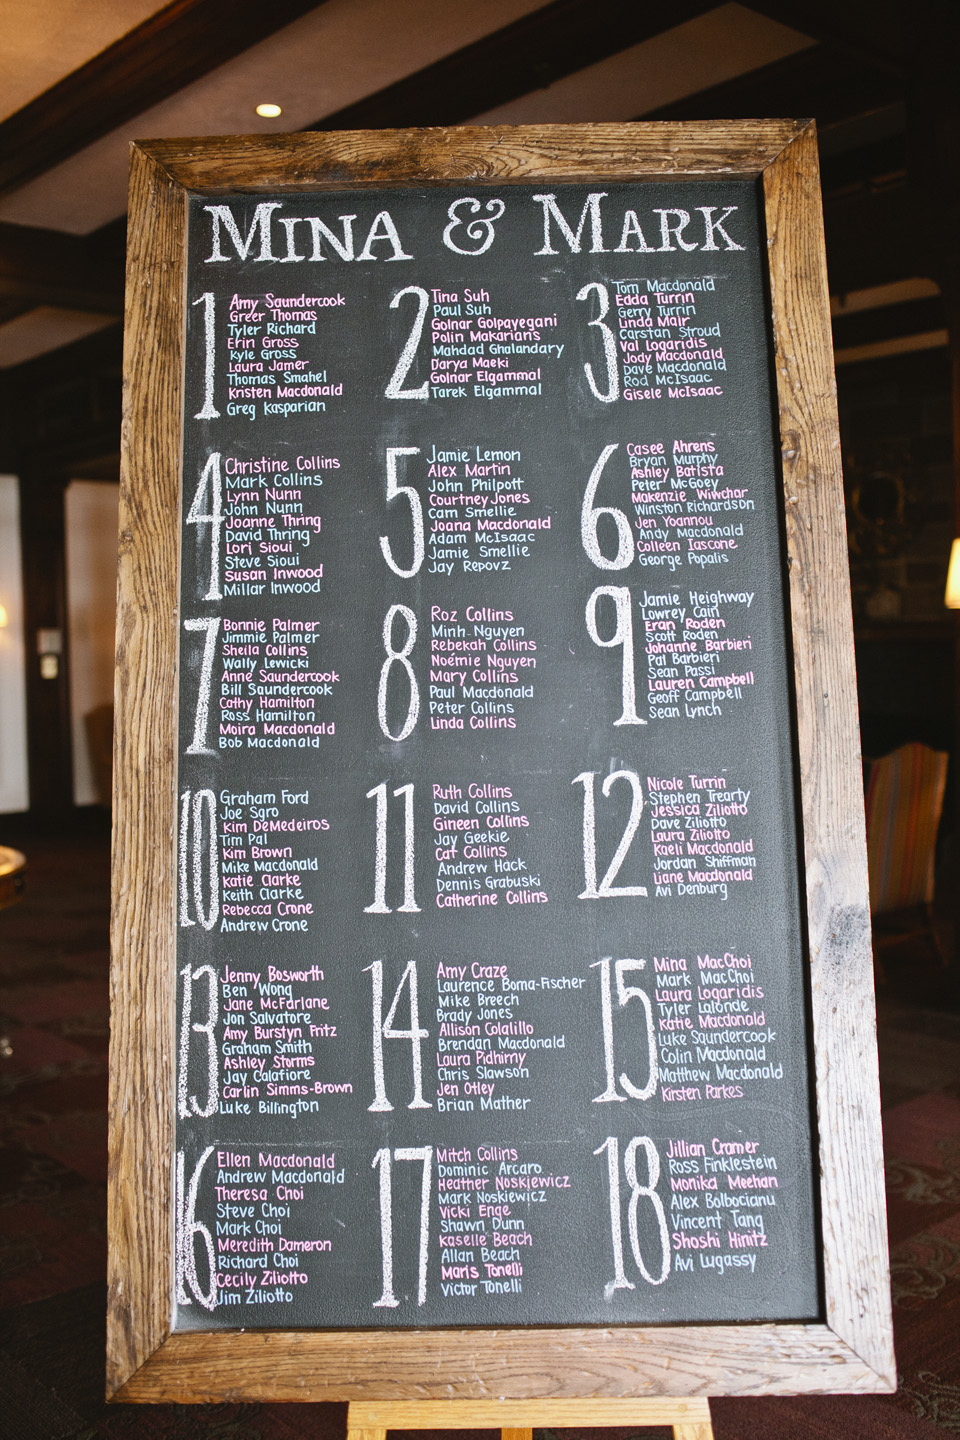 MINA & MARK
1
Amy Saundercook
Greer Thomas
Tyler Richard
Erin Gross
Kyle Gross
Laura Jamer
Thomas Smahel
Kristen Macdonald
Greg Kasparian
2
Tina Suh
Paul Suh
Golnar Golpayegani
Polin Makarians
Mahdad Ghalandary
Darya Maeki
Golnar Elgammal
Tarek Elgammal
3
Tom Macdonald
Edda Turrin
Gerry Turrin
Linda Mair
Carstan Stroud
Val Logaridis
Jody Macdonald
Dave Macdonald
Rod McIsaac
Gisele McIsaac
4
Christine Collins
Mark Collins
Lynn Nunn
John Nunn
Joanne Thring
David Thring
Lori Sioui
Steve Sioui
Susan Inwood
Millar Inwood
5
Jamie Lemon
Alex Martin
John Philpott
Courtney Jones
Cam Smellie
Joana Macdonald
Adam McIsaac
Jamie Smellie
Jay Repovz
6
Casee Ahrens
Bryan Murphy
Ashley Batista
Peter McGoey
Makenzie Wiwchar
Winston Richardson
Jen Yoannou
Andy Macdonald
Colleen Iascone
George Popalis
7
Bonnie Palmer
Jimmie Palmer
Sheila Collins
Wally Lewicki
Anne Saundercook
Bill Saundercook
Cathy Hamilton
Ross Hamilton
Moira Macdonald
Bob Macdonald
8
Roz Collins
Minh Nguyen
Rebekah Collins
Noémie Nguyen
Mary Collins
Paul Macdonald
Peter Collins
Linda Collins
9
Jamie Heighway
Lowrey Cain
Eran Roden
Scott Roden
Johanne Barbieri
Pat Barbieri
Sean Passi
Lauren Campbell
Geoff Campbell
Sean Lynch
10
Graham Ford
Joe Sgro
Kim DeMedeiros
Tim Pal
Kim Brown
Mike Macdonald
Katie Clarke
Keith Clarke
Rebecca Crone
Andrew Crone
11
Ruth Collins
David Collins
Gineen Collins
Jay Geekie
Cat Collins
Andrew Hack
Dennis Grabuski
Catherine Collins
12
Nicole Turrin
Stephen Trearty
Jessica Ziliotto
Dave Ziliotto
Laura Ziliotto
Kaeli Macdonald
Jordan Shiffman
Liane Macdonald
Avi Denburg
13
Jenny Bosworth
Ben Wong
Jane McFarlane
Jon Salvatore
Amy Burstyn Fritz
Graham Smith
Ashley Storms
Jay Calafiore
Carlin Simms-Brown
Luke Billington
14
Amy Craze
Laurence Boma-Fischer
Mike Breech
Brady Jones
Allison Colalillo
Brendan Macdonald
Laura Pidhirny
Chris Slawson
Jen Otley
Brian Mather
15
Mina MacChoi
Mark MacChoi
Laura Logaridis
Tyler Lalonde
Katie Macdonald
Luke Saundercook
Colin Macdonald
Matthew Macdonald
Kirsten Parkes
16
Ellen Macdonald
Andrew Macdonald
Theresa Choi
Steve Choi
Mark Choi
Meredith Dameron
Richard Choi
Cecily Ziliotto
Jim Ziliotto
17
Mitch Collins
Dominic Arcaro
Heather Noskiewicz
Mark Noskiewicz
Vicki Enge
Shawn Dunn
Kaselle Beach
Allan Beach
Maris Tonelli
Victor Tonelli
18
Jillian Cramer
Ross Finklestein
Monika Meehan
Alex Bolbocianu
Vincent Tang
Shoshi Hinitz
Avi Lugassy